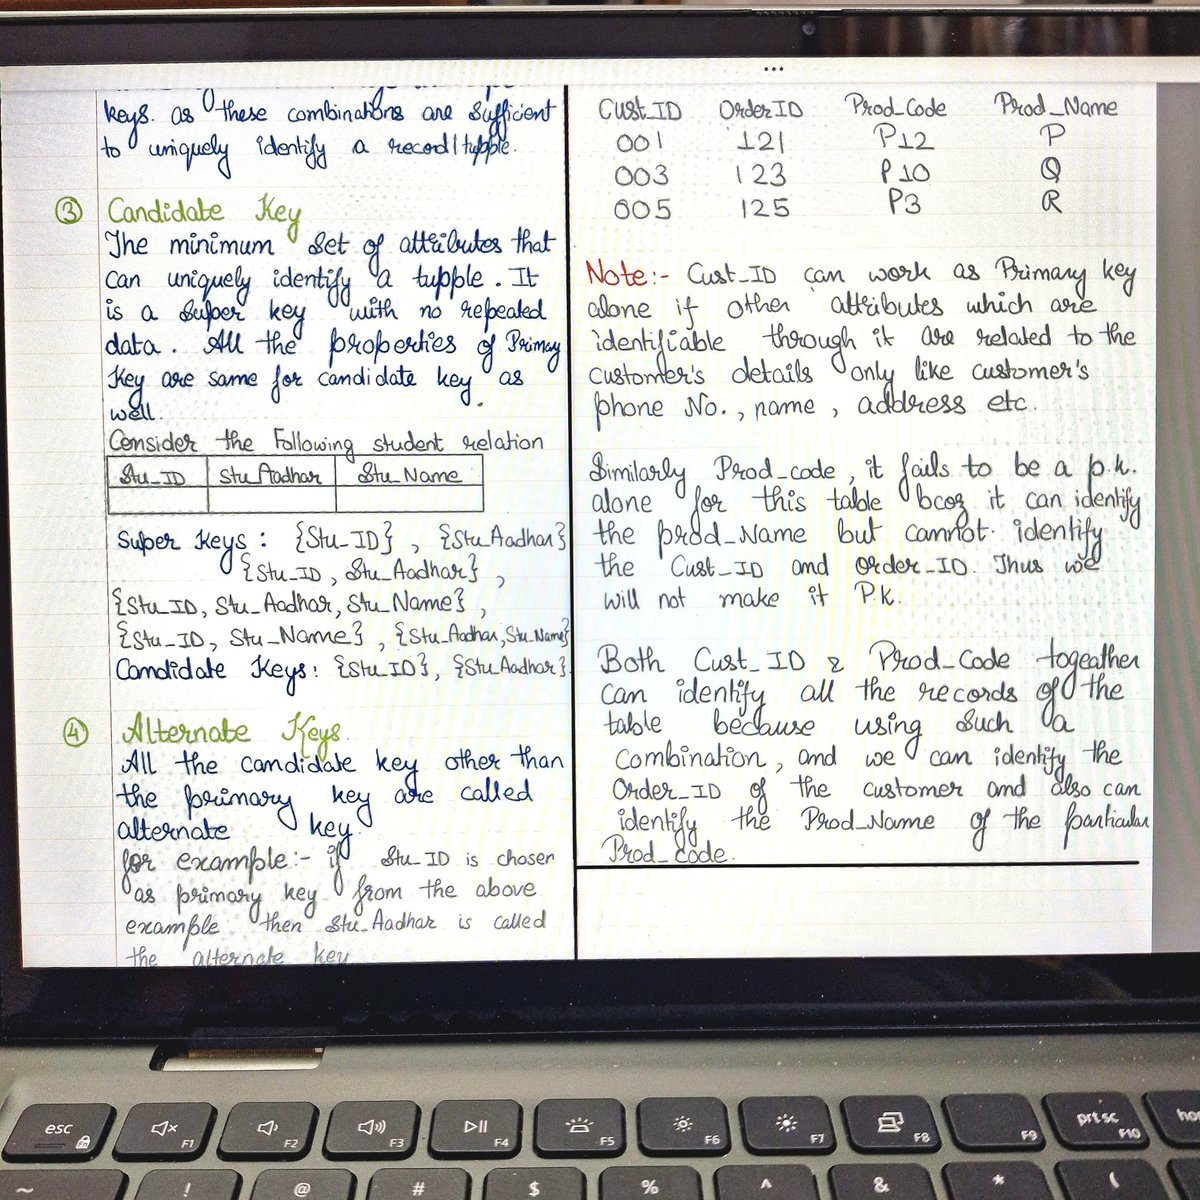 keys. as these combinations are sufficient
to uniquely identify a record/tupple.
③ Candidate Key
The minimum set of attributes that
can uniquely identify a tupple. It
is a super key with no repeated
data. All the properties of Primary
Key are same for candidate key as
well.
Consider the Following student relation
Stu_ID Stu_Aadhar Stu_Name
Super Keys : {Stu_ID} , {Stu_Aadhar}
{Stu_ID , Stu_Aadhar} ,
{Stu_ID, Stu_Aadhar, Stu_Name} ,
{Stu_ID, Stu_Name} , {Stu_Aadhar, Stu_Name}
Candidate Keys: {Stu_ID}, {Stu_Aadhar}
④ Alternate Keys
All the candidate key other than
the primary key are called
alternate key.
for example:- if Stu_ID is chosen
as primary key from the above
example then Stu_Aadhar is called
the alternate key
Cust_ID Order ID Prod_Code Prod_Name
001 121 P12 P
003 123 P10 Q
005 125 P3 R
Note:- Cust_ID can work as Primary key
alone if other attributes which are
identifiable through it are related to the
customer's details only like customer's
phone No., name, address etc.
Similarly Prod_code, it fails to be a p.k.
alone for this table bcoz it can identify
the prod_Name but cannot identify
the Cust_ID and Order_ID. Thus we
will not make it P.K.
Both Cust_ID & Prod_Code togeather
can identify all the records of the
table because using such a
combination, and we can identify the
Order_ID of the customer and also can
identify the Prod_Name of the particular
Prod_code.
esc F1 F2 F3 F4 F5 F6 F7 F8 F9 prt sc F10 ho
~ ! @ # $ % ^ & * (